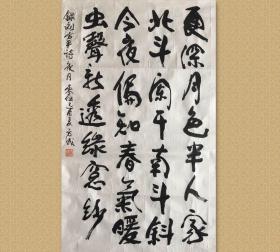 更深月色半人家
北斗阑干南斗斜
今夜偏知春氣暖
虫聲新透緑窓紗
錄刘方平詩夜月